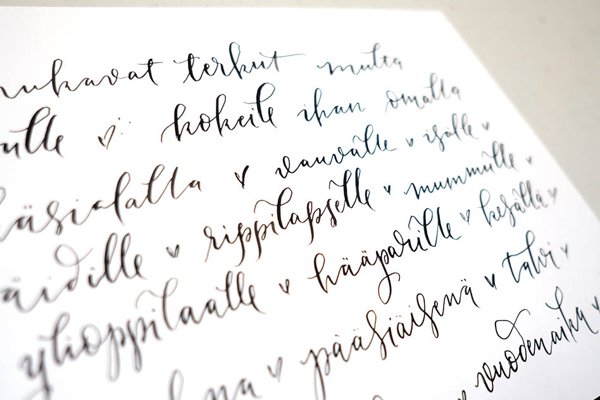 mukavat terkut multa
sulle ♥ kokeile ihan omalla
käsialalla ♥ vauvalle ♥ isälle ♥
äidille ♥ rippilapselle ♥ mummulle ♥
ylioppilaalle ♥ hääparille ♥ kesällä ♥
♥ pääsiäisenä ♥ talvi ♥
♥ vuodenaika ♥